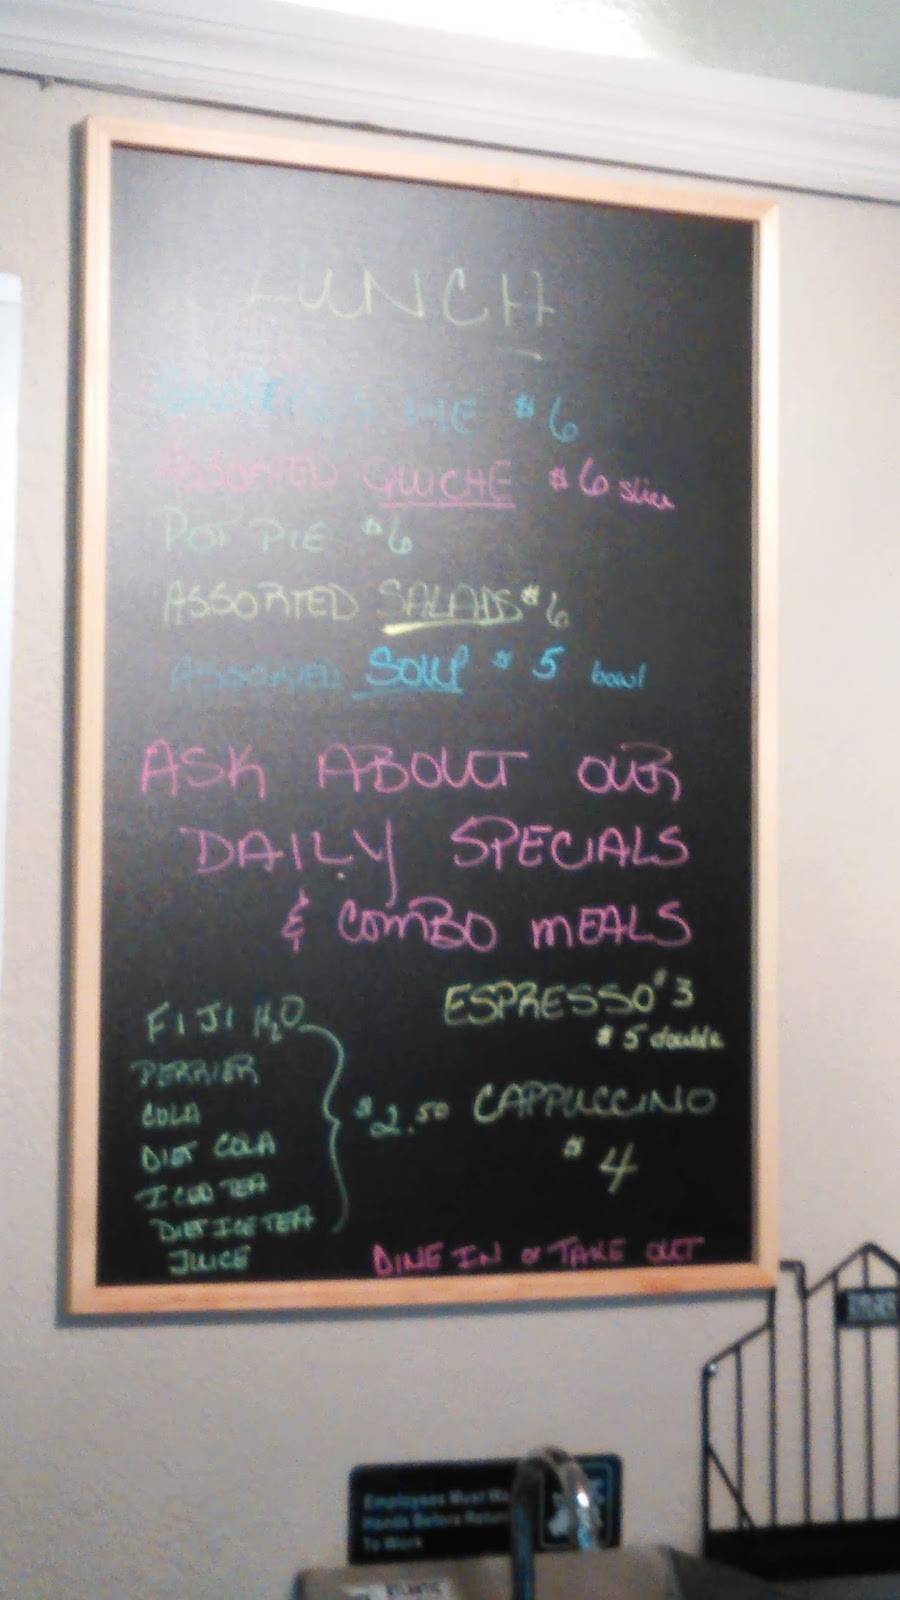 LUNCH
PIE $6
ASSORTED QUICHE $6 slice
POT PIE $6
ASSORTED SALADS $6
ASSORTED SOUP $5 bowl
ASK ABOUT OUR
DAILY SPECIALS
& COMBO MEALS
ESPRESSO $3
$5 double
FIJI H2O
PERRIER
COLA
DIET COLA
ICED TEA
DIET ICE TEA
JUICE
$2.50
CAPPUCCINO
$4
DINE IN or TAKE OUT
Employees Must
Hands Before
To Work
ATLANTIC